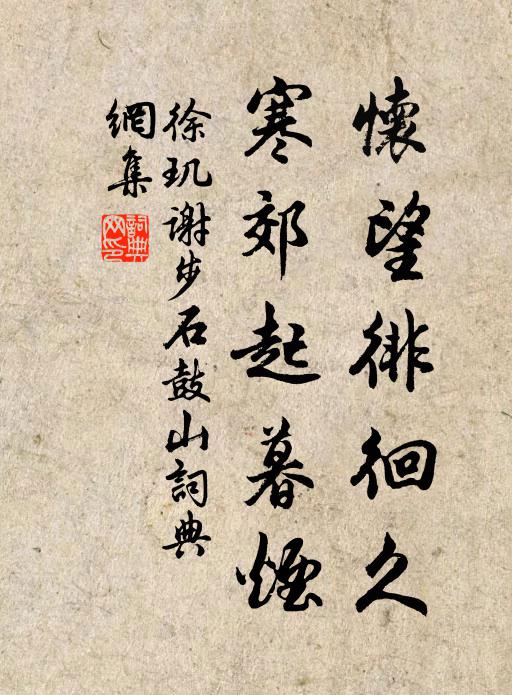 懷望徘徊久
寒郊起暮煙
徐玑谢步石鼓山詞典
網集
詞典
网印